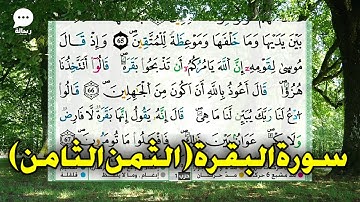 رسالة
بَيْنَ يَدَيْهَا وَمَا خَلْفَهَا وَمَوْعِظَةً لِّلْمُتَّقِينَ ٦٥ وَإِذْ قَالَ
مُوسَىٰ لِقَوْمِهِ إِنَّ ٱللَّهَ يَأْمُرُكُمْ أَن تَذْبَحُوا۟ بَقَرَةً ۖ قَالُوٓا۟ أَتَتَّخِذُنَا
هُزُؤًا ۖ قَالَ أَعُوذُ بِٱللَّهِ أَنْ أَكُونَ مِنَ ٱلْجَٰهِلِينَ ٦٦ قَالُوا۟
ٱدْعُ لَنَا رَبَّكَ يُبَيِّن لَّنَا مَا هِيَ ۚ قَالَ إِنَّهُۥ يَقُولُ إِنَّهَا بَقَرَةٌ لَّا فَارِضٌ
وَلَا بِكْرٌ عَوَانٌۢ بَيْنَ ذَٰلِكَ ۖ فَٱفْعَلُوا۟ مَا تُؤْمَرُونَ ٦٧
سورة البقرة (الثمن الثامن)